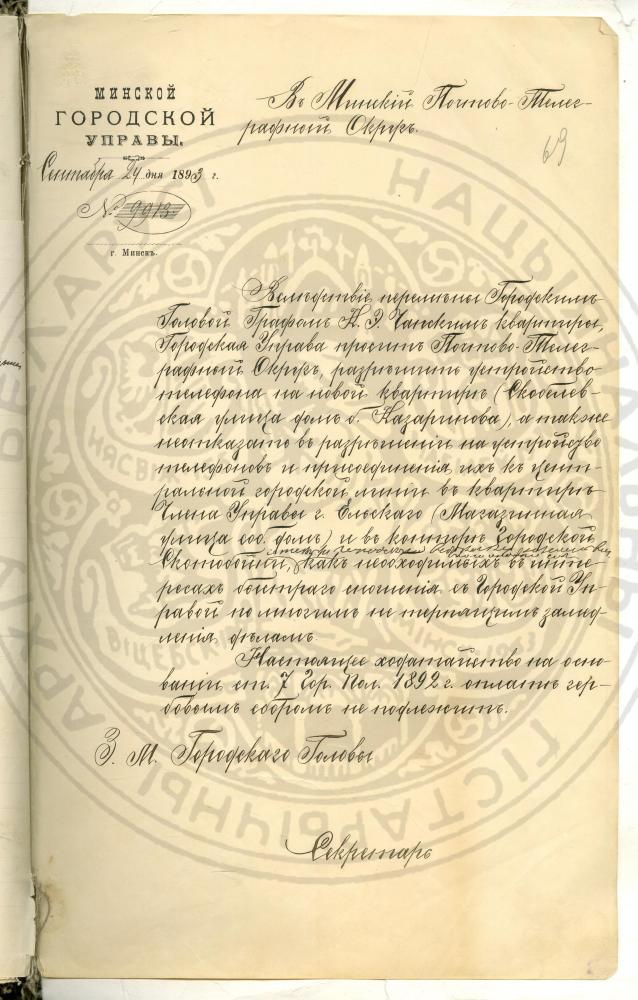 МИНСКОЙ
ГОРОДСКОЙ
УПРАВЫ.
Сентября 24 дня 1893 г.
№ 9913
г. Минскъ.
Въ Минскій Почтово-Телег-
рафный Округъ.
69
Вслѣдствіе перемѣны Городскимъ
Головой Графомъ К. Э. Чапскимъ квартиры,
Городская Управа проситъ Почтово-Телег-
рафный Округъ, разрѣшить устройство
телефона на новой квартирѣ (Скобелев-
ская улица домъ б. Казаринова), а также
неотказать въ разрѣшеніи на устройство
телефоновъ и присоединенія ихъ къ цент-
ральной городской линіи въ квартирѣ
Члена Управы г. Ельскаго (Магазинная
улица соб. домъ) и въ конторѣ Городской
Скотобойни, какъ необходимыхъ въ инте-
ресахъ быстраго сношенія съ Городской Уп-
равой по многимъ не терпящимъ замед-
ленія дѣламъ.
Настоящее ходатайство на осно-
ваніи ст. 7 Гор. Пол. 1892 г. оплатѣ гер-
бовымъ сборомъ не подлежитъ.
З. М. Городскаго Головы
Секретарь
НАЦЫЯНАЛЬНЫ
ГІСТАРЫЧНЫ
АРХІЎ
БЕЛАРУСІ